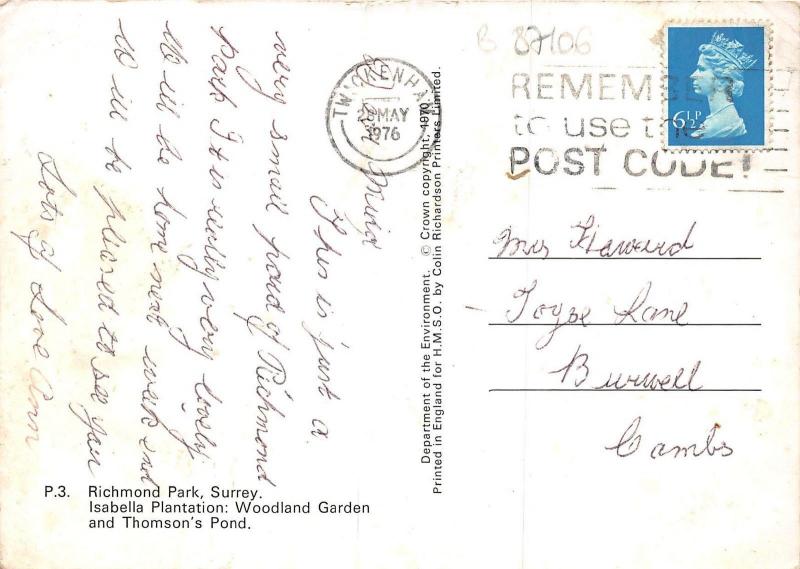 B 87106
TWICKENHAM
28 MAY
1976
REMEMBER
to use the
POST CODE!
6½P
This is just a
very small part of Richmond
park It is really very lovely
We will be home next week end
Will be pleased to see you
Lots of Love Ann
Department of the Environment. © Crown copyright, 1970
Printed in England for H.M.S.O. by Colin Richardson Printers Limited.
Mrs Haward
Toyse Lane
Burwell
Cambs
P.3. Richmond Park, Surrey.
Isabella Plantation: Woodland Garden
and Thomson's Pond.